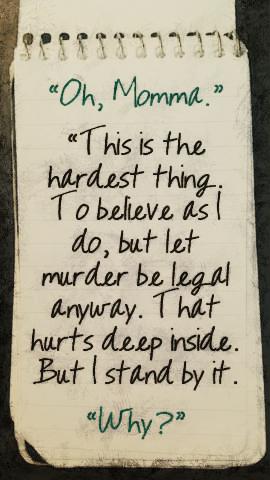 “Oh, Momma.”
“This is the
hardest thing.
To believe as I
do, but let
murder be legal
anyway. That
hurts deep inside.
But I stand by it.
“Why?”